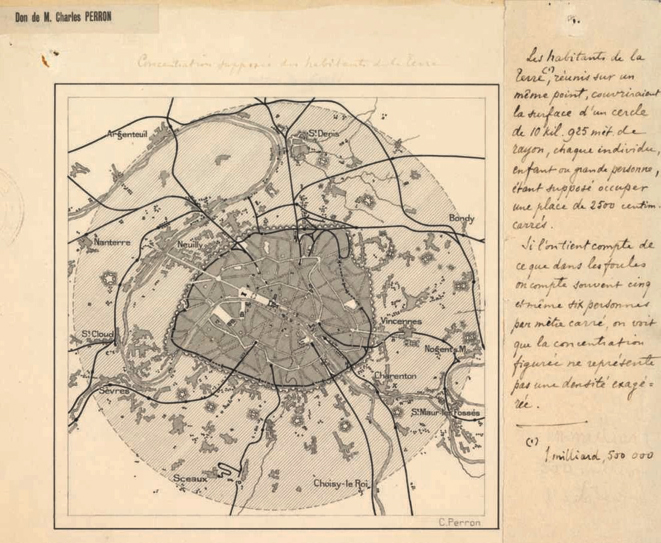 Don de M. Charles PERRON
Concentration supposée des habitants de la Terre
Argenteuil
St Denis
Bondy
Nanterre
Neuilly
St Cloud
Vincennes
Nogent s. M.
Sèvres
Charenton
St Maur les Fossés
Sceaux
Choisy-le Roi
C. Perron
Les habitants de la
Terre (1), réunis sur un
même point, couvriraient
la surface d'un cercle
de 10 kil. 925 mèt. de
rayon, chaque individu,
enfant ou grande personne,
étant supposé occuper
une place de 2500 centim.
carrés.
Si l'on tient compte de
ce que dans les foules
on compte souvent cinq
et même six personnes
par mètre carré, on voit
que la concentration
figurée ne représente
pas une densité exagé=
rée.
(1)
1 milliard, 500 000